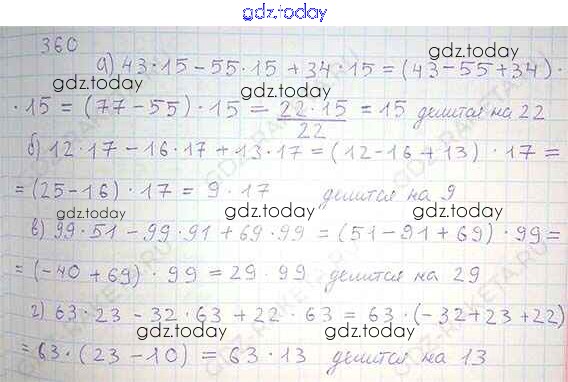 gdz.today
360
а) 43·15 – 55·15 + 34·15 = (43–55+34)·
gdz.today gdz.today
·15 = (77–55)·15 = 22·15/22 = 15 делится на 22
gdz.today gdz.today
б) 12·17 – 16·17 + 13·17 = (12–16+13)·17 =
= (25–16)·17 = 9·17 делится на 9
gdz.today gdz.today gdz.today
в) 99·51 – 99·91 + 69·99 = (51–91+69)·99 =
gdz.today gdz.today
= (-40+69)·99 = 29·99 делится на 29
gdz.today gdz.today
г) 63·23 – 32·63 + 22·63 = 63·(-32+23+22)
gdz.today gdz.today
= 63·(23–10) = 63·13 делится на 13